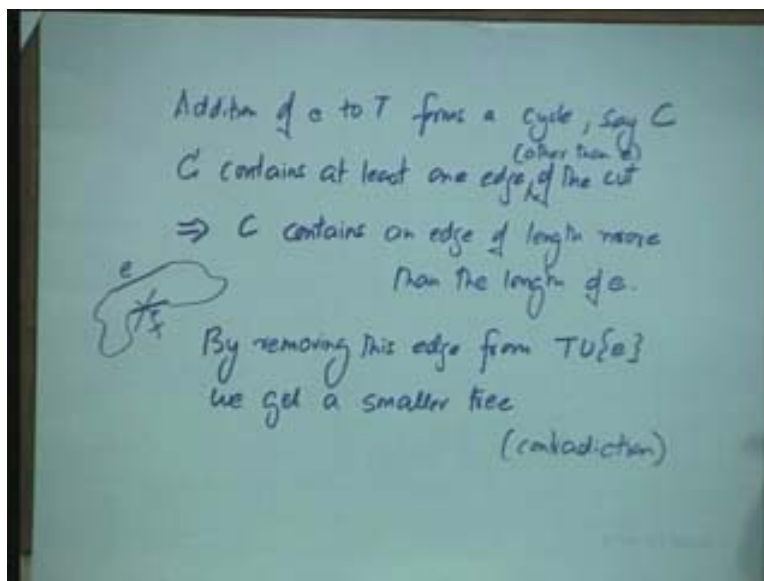 Addition of e to T forms a cycle, say C
(other than e)
C contains at least one edge of the cut
⇒ C contains an edge of length more
than the length of e.
e
By removing this edge from TU{e}
we get a smaller tree
(contradiction)